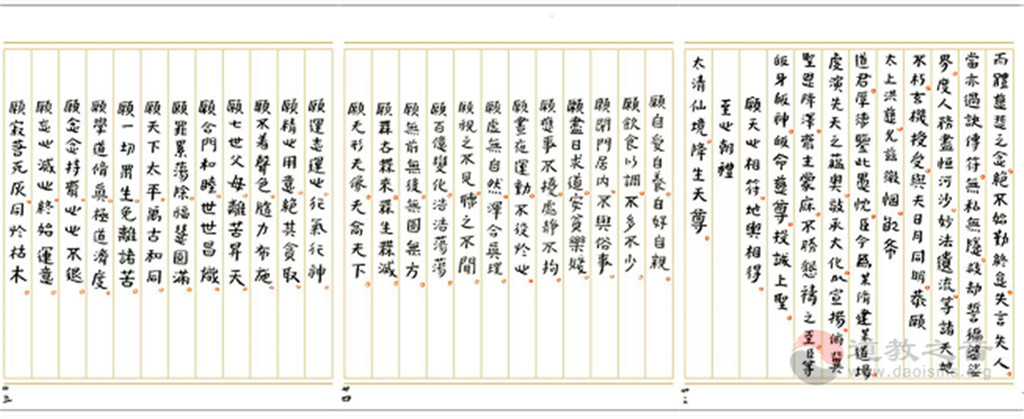 而體慈悲之念絕不始勤終怠失言失人
當亦過訣傳符無私無隱歿劫誓徧婆娑
界度人務盡恒河沙妙法遺流等諸天地
不朽玄機授受與天日月同明恭願
太上洪慈允茲微悃敬希
道君厚德鑒此愚忱臣今為某脩建某道場
度演先天之蘊奧敬承大化以宣揚俯冀
聖恩降澤齋主蒙庥不勝懇禱之至臣等
皈身皈神皈命慈尊授誠上聖
願天心相符地輿相得
至心朝禮
太清仙境降生天尊
願自愛自養自好自親
願飲食以調不多不少
願閉門居內不與俗事
願盡日求道安貧樂賤
願應事不擾處靜不拘
願晝夜運動不役於心
願虛無自然渾合真理
願視之不見聽之不聞
願百億變化浩浩蕩蕩
願無前無後無圓無方
願霖杳霖來霖生霖滅
願无形无像无高无下
願運志運心行氣行神
願精心用意絕其貪取
願不着聲色隨力布施
願七世父母離苦昇天
願合門和睦世世昌熾
願罪累蕩除福慧圓滿
願天下太平萬古和同
願一切眾生免離諸苦
願學道脩真極道濟度
願念念持齋心心不退
願忘心滅心終始運意
願寂若死灰同於枯木
道教之音
www.daoisms.org